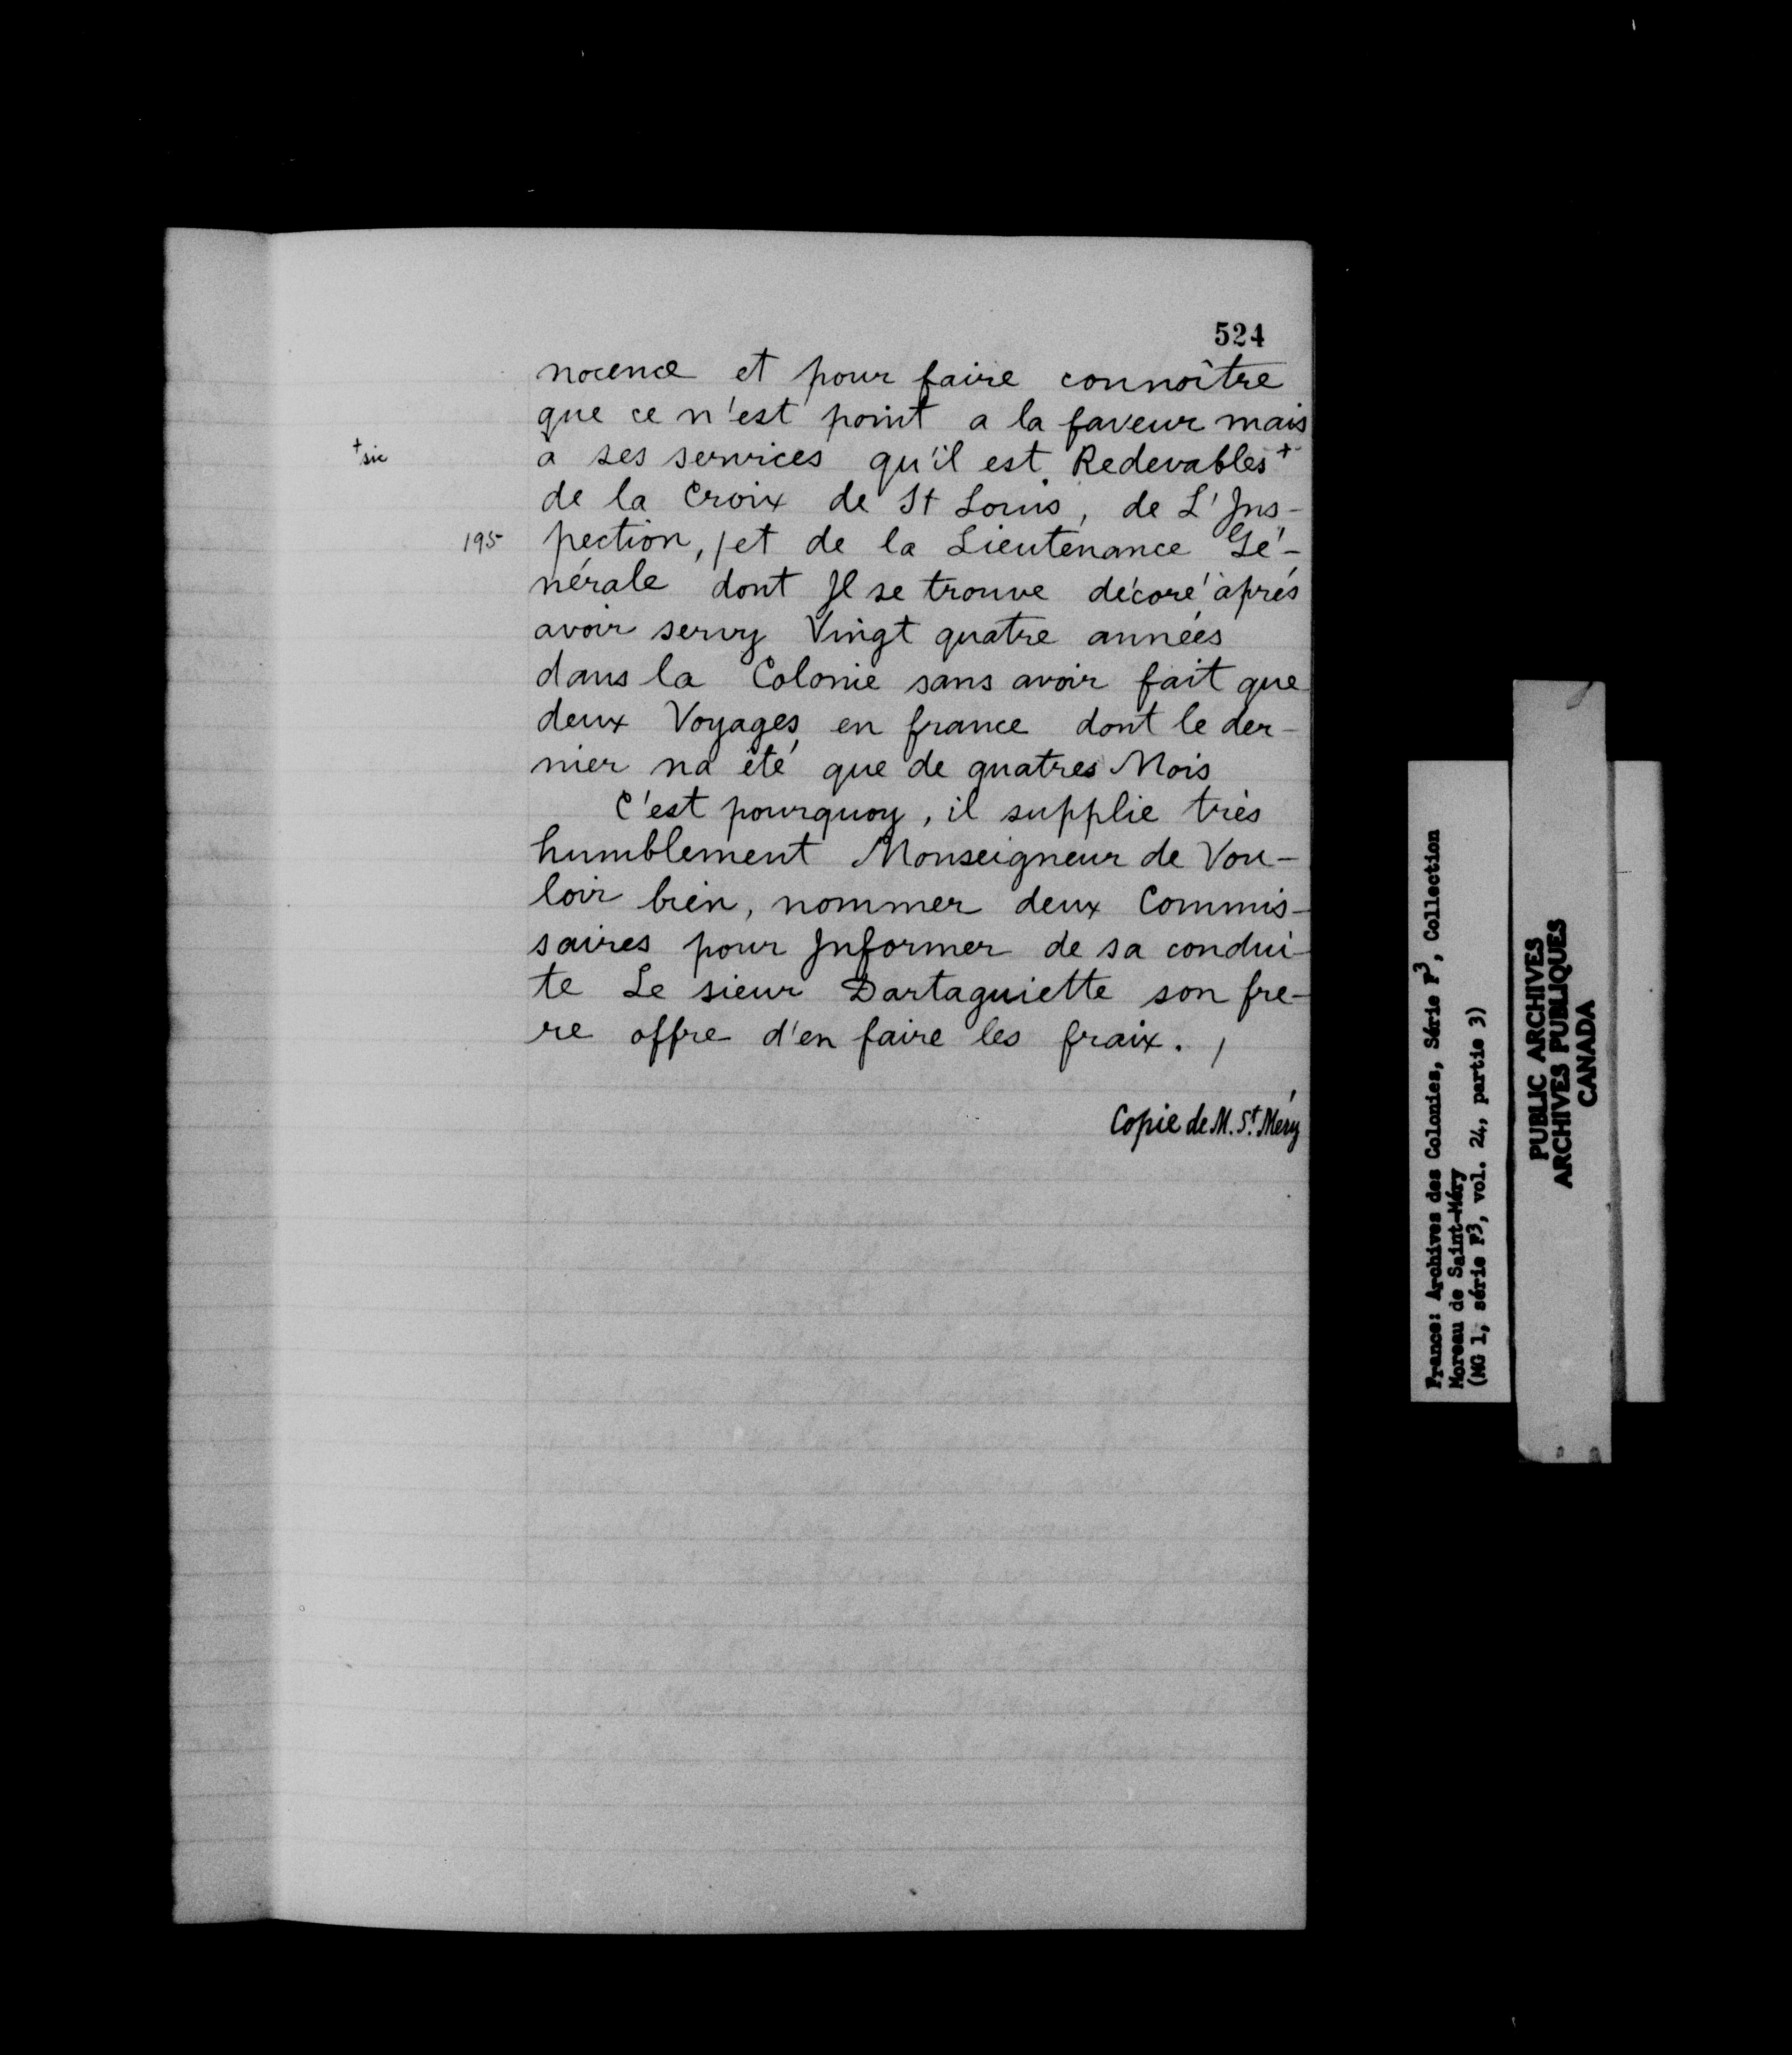 524
nocence et pour faire connoître
que ce n'est point a la faveur mais
+ sic
à ses services qu'il est Redevables +
de la Croix de St Louis, de L'Ins-
195
pection, / et de la Lieutenance Gé-
nérale dont Il se trouve décoré après
avoir servy Vingt quatre années
dans la Colonie sans avoir fait que
deux Voyages en france dont le der-
nier na été que de quatres Mois
C'est pourquoy, il supplie très
humblement Monseigneur de Vou-
loir bien, nommer deux Commis-
saires pour Informer de sa condui-
te Le sieur Dartaguiette son fre-
re offre d'en faire les fraix. /
Copie de M. St. Méry
France: Archives des Colonies, Série F3, Collection
Moreau de Saint-Méry
(MG 1, série F3, vol. 24, partie 3)
PUBLIC ARCHIVES
ARCHIVES PUBLIQUES
CANADA